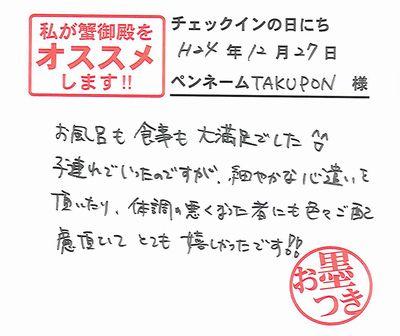 私が蟹御殿を
オススメ
します!!
チェックインの日にち
H24 年 12 月 27 日
ペンネーム TAKUPON 様
お風呂も 食事も 大満足でした ^^
子連れでいったのですが、細やかな心遣いを
頂いたり、体調の悪くなった者にも色々ご配
慮頂いて とても 嬉しかったです!!
お墨つき